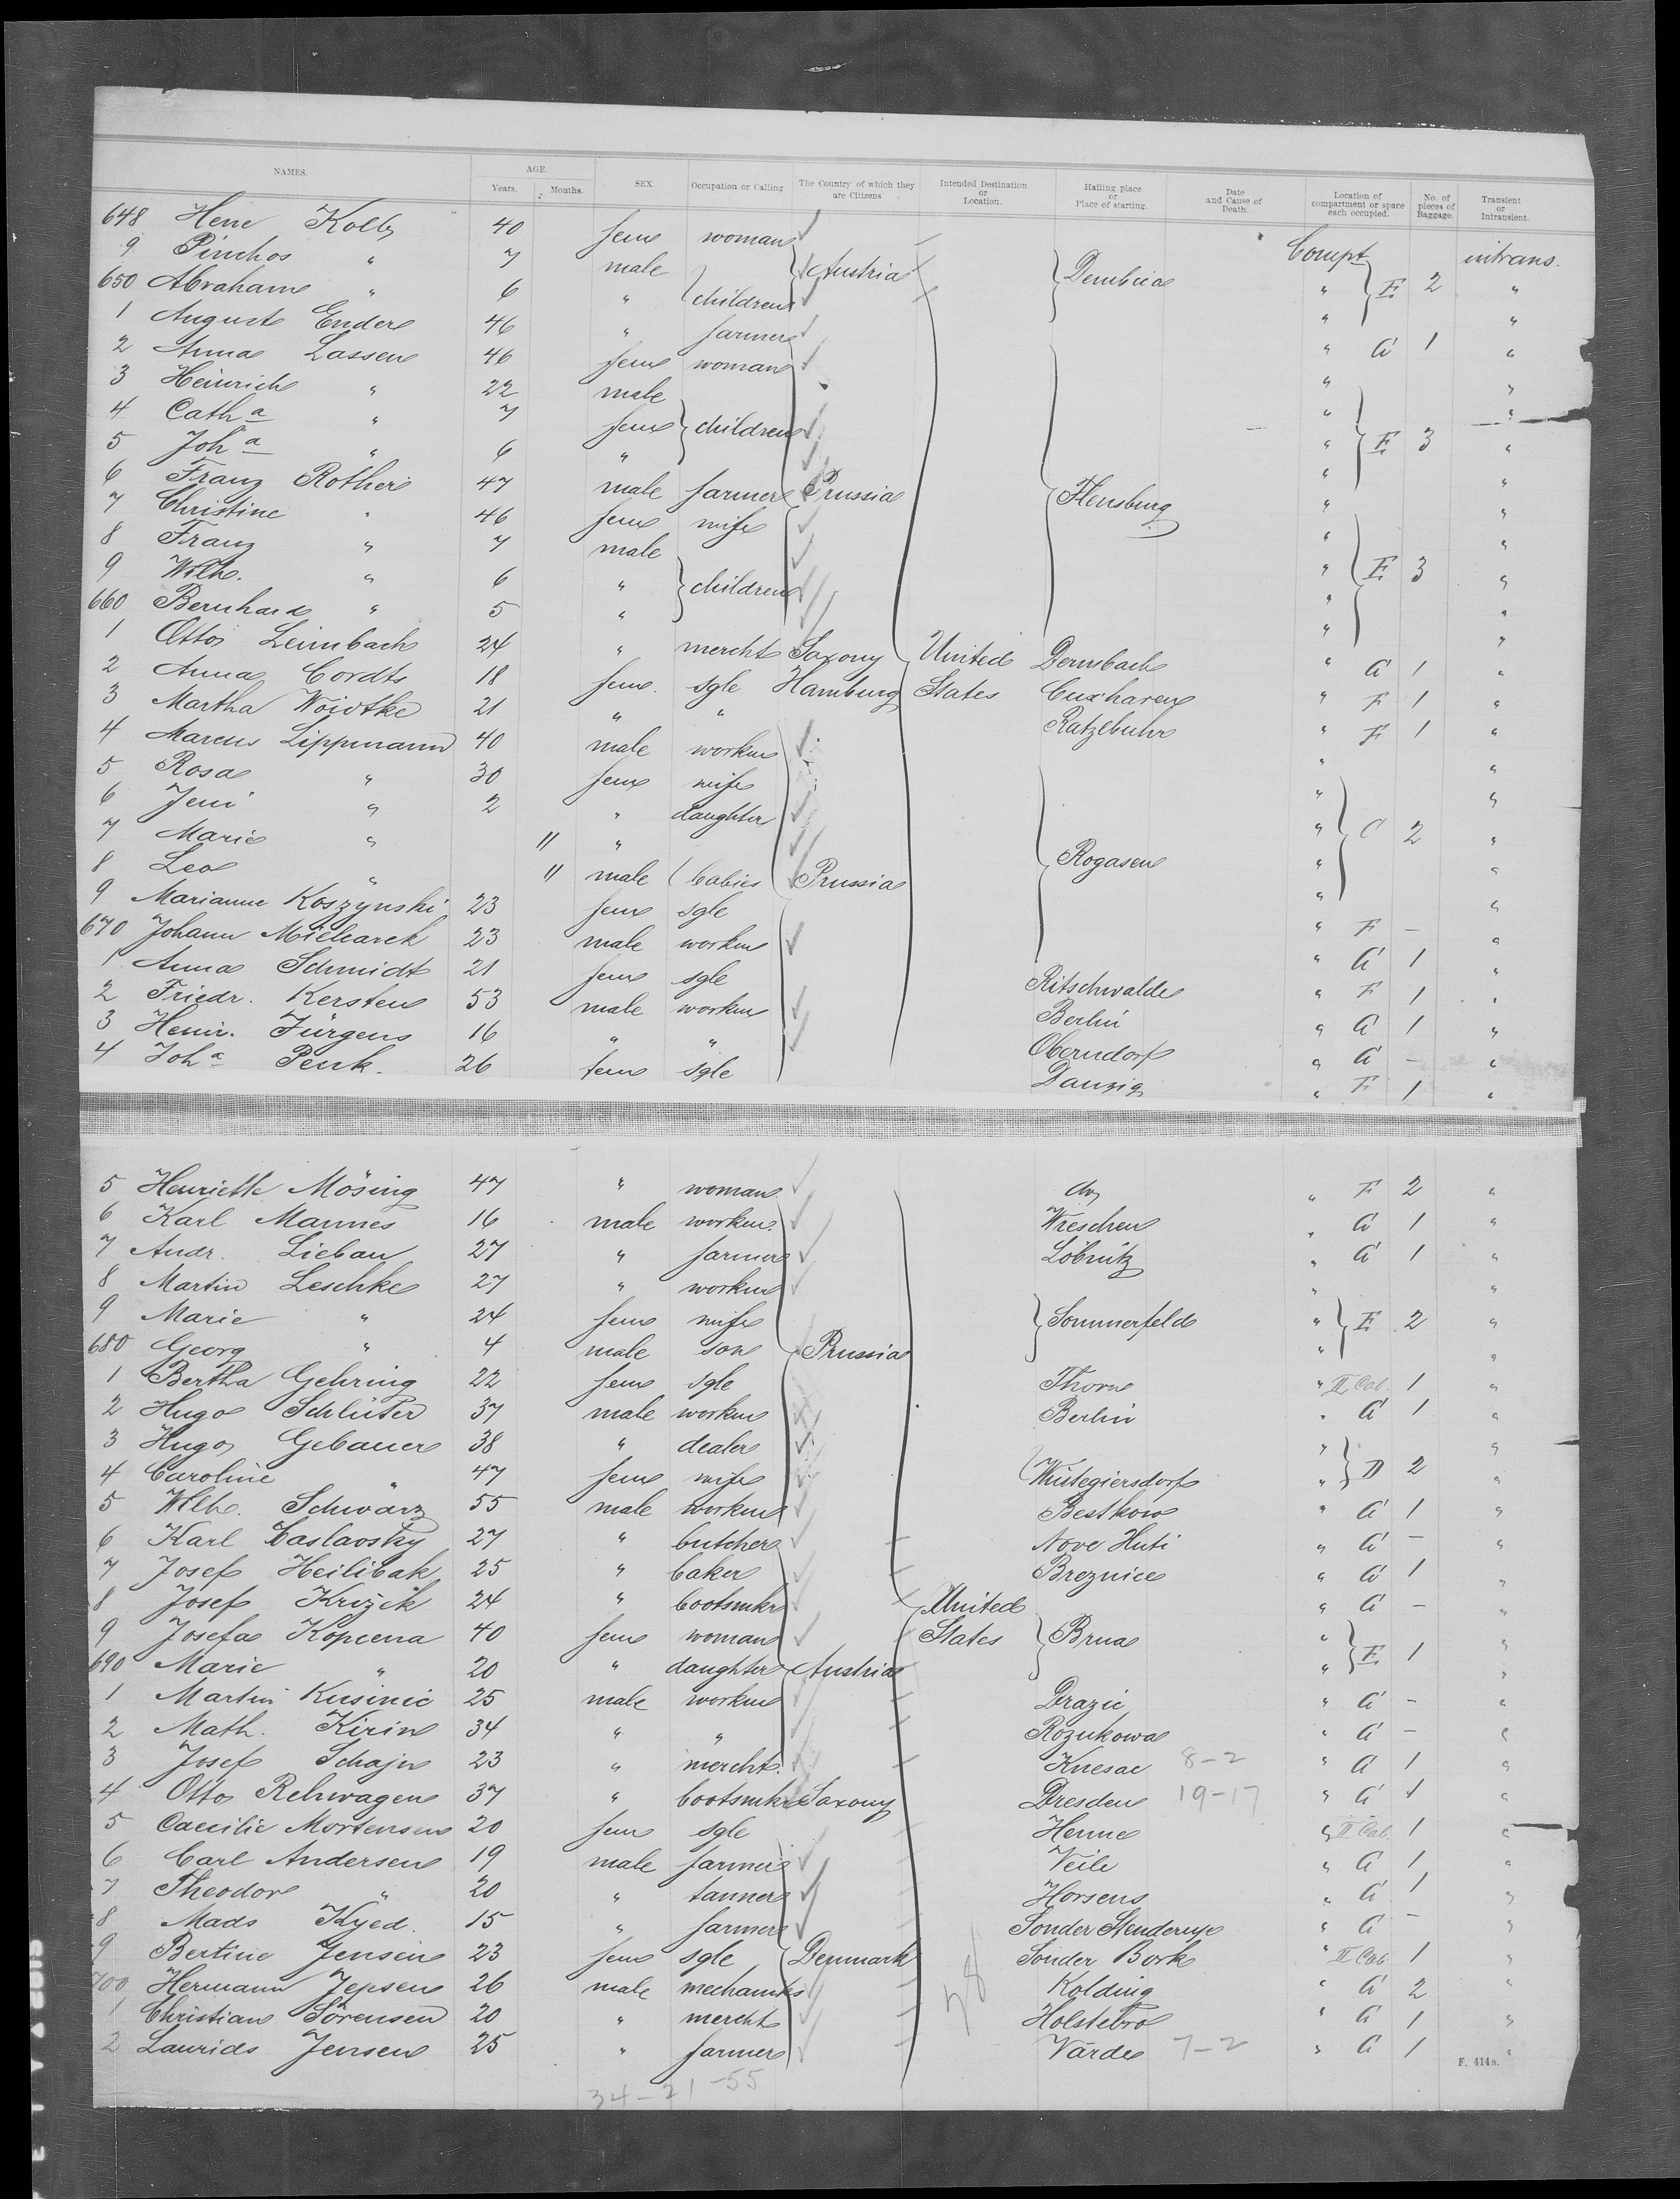 NAMES. AGE. Years. Months. SEX. Occupation or Calling The Country of which they are Citizens Intended Destination or Location. Hailing place or Place of starting. Date and Cause of Death. Location of compartment or space each occupied. No. of pieces of Baggage. Transient or Intransient.
648 Hene Kolb 40 fem woman Compt intrans.
9 Pinchos " 7 male Austria Dembica " E 2 "
650 Abraham " 6 " children " "
1 August Ender 46 " farmer " A 1 "
2 Anna Lassen 46 fem woman " "
3 Heinrich " 22 male " "
4 Cath a " 7 fem children " E 3 "
5 Joh a " 6 " " "
6 Franz Rother 47 male farmer Prussia Flensburg " "
7 Christine " 46 fem wife " "
8 Franz " 7 male " E 3 "
9 Wilh. " 6 " children " "
660 Bernhard " 5 " " "
1 Otto Leimbach 24 " mercht Saxony United Dermbach " A 1 "
2 Anna Cordts 18 fem. sgle Hamburg States Cuxhaven " F 1 "
3 Martha Woidtke 21 " " Ratzebuhr " F 1 "
4 Marcus Lippmann 40 male workm " "
5 Rosa " 30 fem wife " "
6 Jeni " 2 " daughter " C 2 "
7 Marie " 11 " " "
8 Leo " 11 male babies Prussia Rogasen " "
9 Marianne Koszynski 23 fem sgle " F - "
670 Johann Mielcarek 23 male workm " A 1 "
1 Anna Schmidt 21 fem sgle Ritschwalde " F 1 "
2 Friedr. Kersten 53 male workm Berlin " A 1 "
3 Heinr. Jürgens 16 " " Oberndorf " A - "
4 Joh a Penk. 26 fem sgle Danzig " F 1 "
5 Henriette Mösing 47 " woman do " F 2 "
6 Karl Mannes 16 male workm. Wreschen " A 1 "
7 Andr. Liebau 27 " farmer Löbnitz " A 1 "
8 Martin Leschke 27 " workm " "
9 Marie " 24 fem wife Sommerfeld " E 2 "
680 Georg " 4 male son Prussia " "
1 Bertha Gehring 22 fem sgle Thorn " II Cab. 1 "
2 Hugo Schlüter 37 male workm Berlin " A 1 "
3 Hugo Gebauer 38 " dealer " "
4 Caroline " 47 fem wife Wüstegiersdorf " D 2 "
5 Wilh. Schwarz 55 male workm Bestkow " A 1 "
6 Karl Caslavsky 27 " butcher Nove Huti " A - "
7 Josef Heilibak 25 " baker Breznice " A 1 "
8 Josef Krizek 24 " bootsmkr United " A - "
9 Josefa Kopecna 40 fem woman States Brna " "
690 Marie " 20 " daughter Austria " E 1 "
1 Martin Kusinic 25 male workm Drazic " A - "
2 Math. Kirin 34 " " Rozukowa " A - "
3 Josef Schajn 23 " mercht. Knesac 8-2 " A 1 "
4 Otto Rehwagen 37 " bootsmkr Saxony Dresden 19-17 " A 1 "
5 Caecilie Mortensen 20 fem sgle Henne " II Cab. 1 "
6 Carl Andersen 19 male farmer Veile " A 1 "
7 Theodor " 20 " tanner Horsens " A 1 "
8 Mads Kyed. 15 " farmer Sonder Stenderup " A - "
9 Bertine Jensen 23 fem sgle Denmark Sonder Bork " II Cab 1 "
700 Hermann Jepsen 26 male mechanik Kolding " A 2 "
1 Christian Sörensen 20 " mercht Holstebro " A 1 "
2 Laurids Jensen 25 " farmer Varde 7-2 " A 1 "
F. 414a.
34-21-55